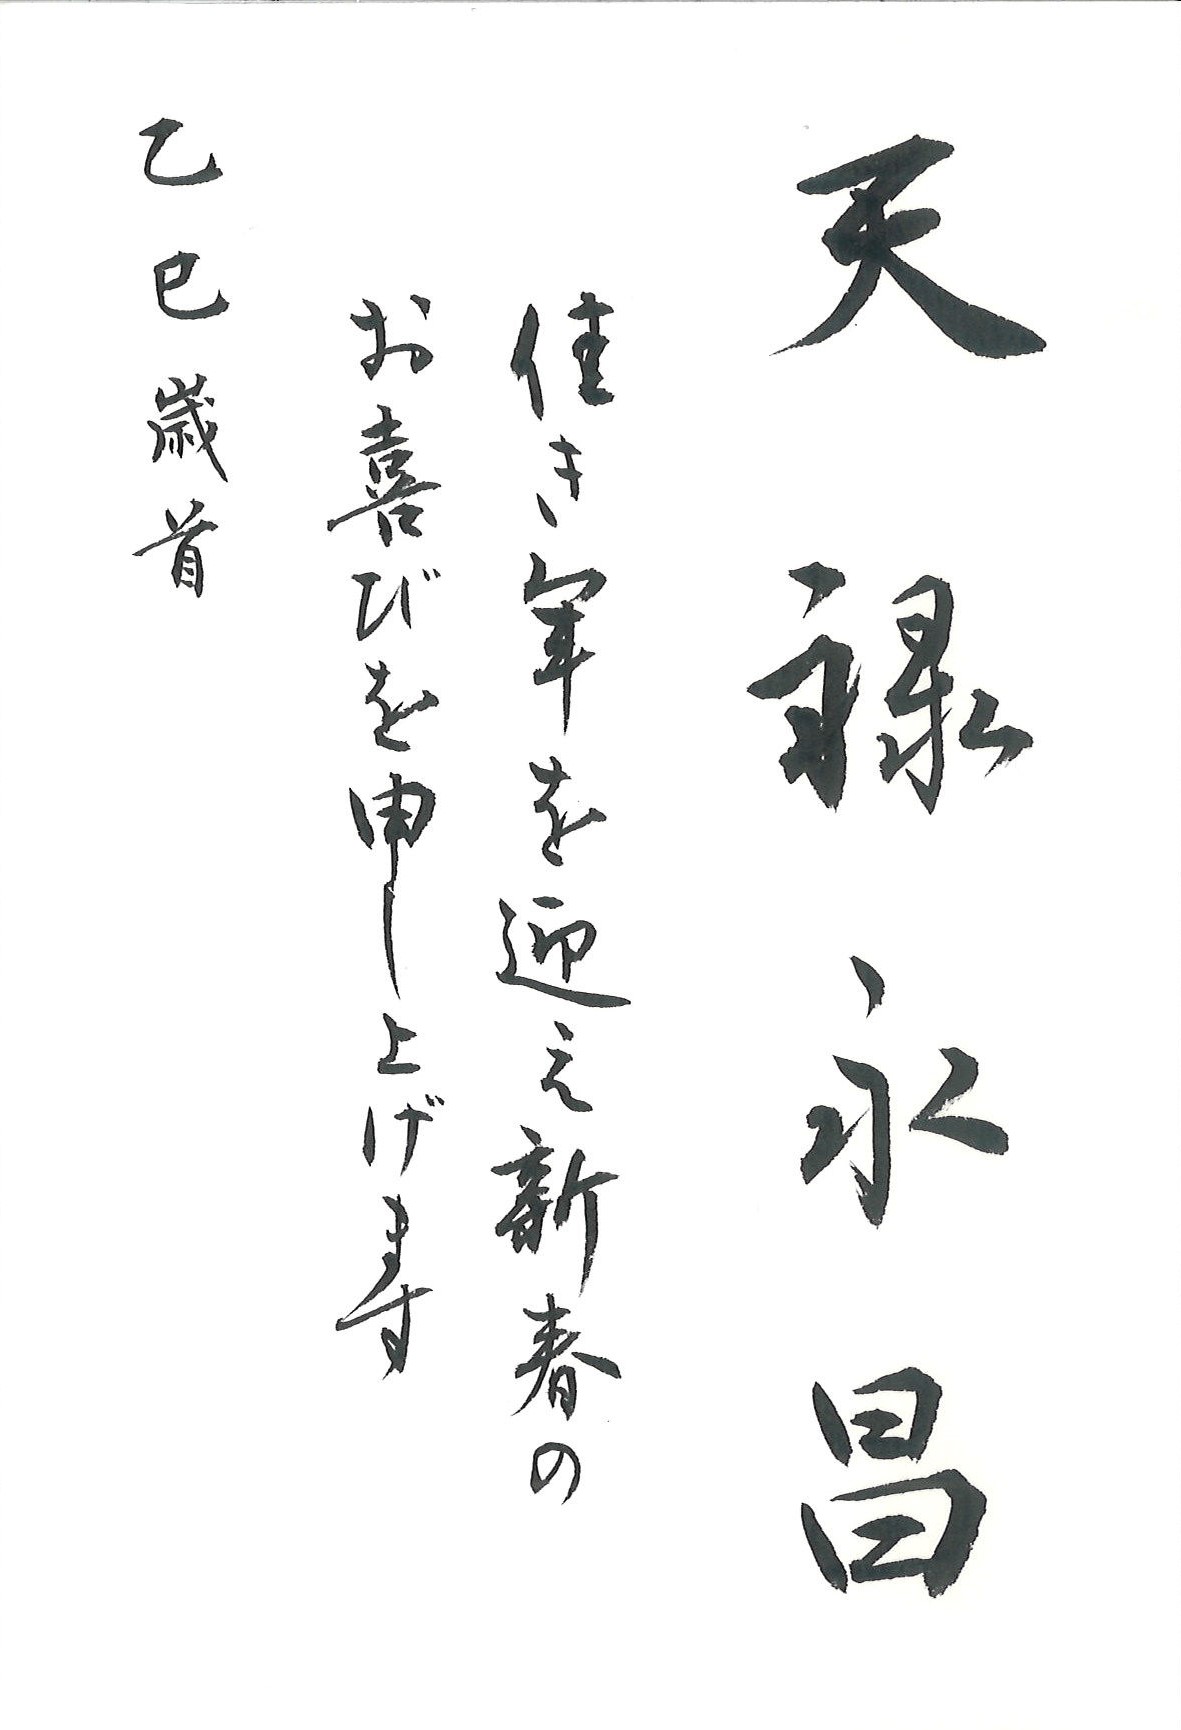 天禄永昌
佳き年を迎え新春の
お喜びを申し上げます
乙巳歳首